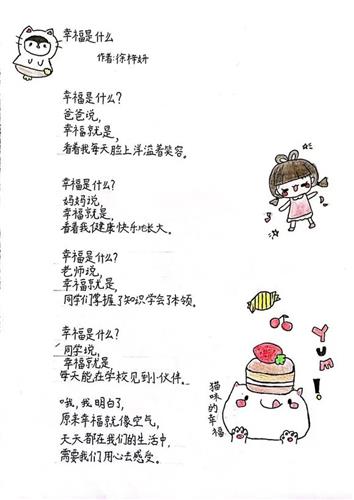 幸福是什么
作者:徐梓妍
幸福是什么?
爸爸说,
幸福就是,
看着我每天脸上洋溢着笑容。
幸福是什么?
妈妈说,
幸福就是,
看着我健康快乐地长大。
幸福是什么?
老师说,
幸福就是,
同学们掌握了知识学会了本领。
幸福是什么?
同学说,
幸福就是
每天能在学校见到小伙伴。
哦,我明白了,
原来幸福就像空气,
天天都在我们的生活中,
需要我们用心去感受。
YUM!
猫咪的幸福